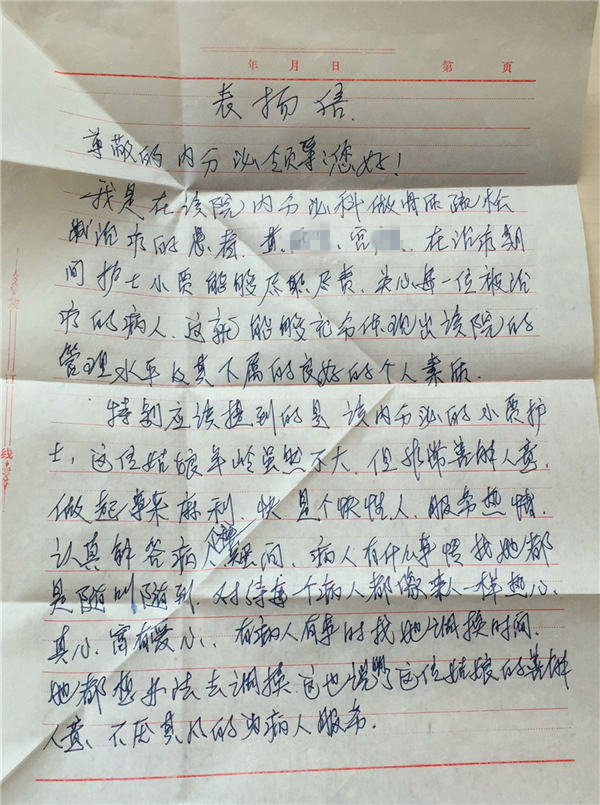 年 月 日 第 页
表扬信.
尊敬的内分泌领导:您好!
我是在该院内分泌科做骨质疏松
治疗的患者. 黄 、宫 、在治疗期
间护士小贾能够尽职尽责、关心每一位被治
疗的病人、这就能够充分体现出该院的
管理水平及其下属的良好的个人素质.
特别应该提到的是该内分泌的小贾护
士, 这位姑娘年岭虽然不大, 但非常善解人意,
做起事来麻利、快是个快性人、服务热情.
认真解答病人 疑问, 病人有什么事情找她都
是随叫随到. 对待每个病人都像亲人一样热心、
真心、富有爱心、有病人有事时找她调换时间.
她都想办法去调换.这也说明了这位姑娘的善解
人意、不厌其凡的为病人服务.
线